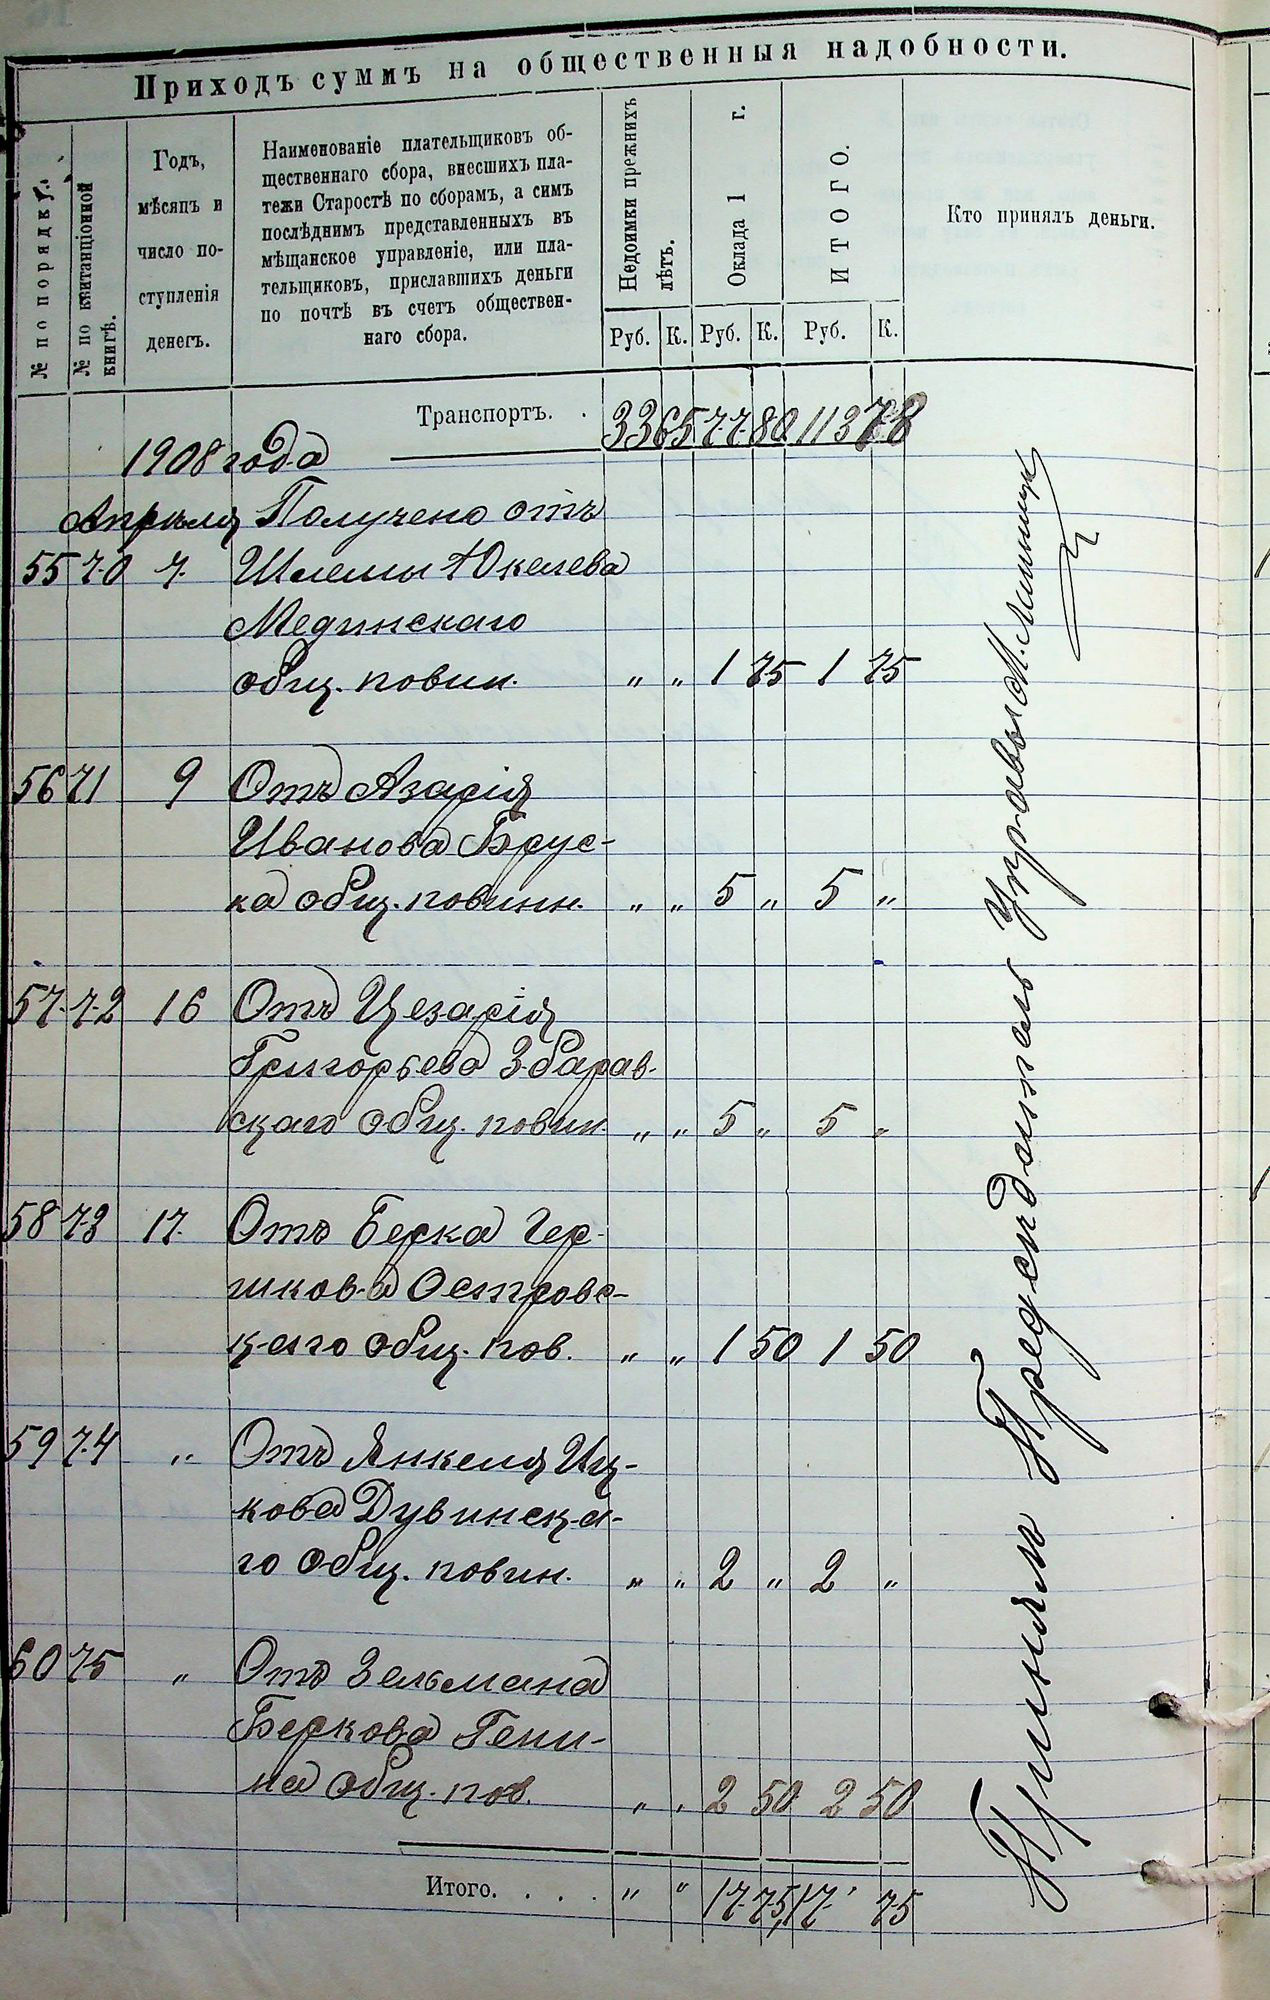 Приходъ суммъ на общественныя надобности.
№ по порядку.
№ по квитанціонной книгѣ.
Годъ,
мѣсяцъ и
число по-
ступленія
денегъ.
Наименованіе плательщиковъ об-
щественнаго сбора, внесшихъ пла-
тежи Старостѣ по сборамъ, а симъ
послѣднимъ представленныхъ въ
мѣщанское управленіе, или пла-
тельщиковъ, приславшихъ деньги
по почтѣ въ счетъ обществен-
наго сбора.
Недоимки прежнихъ лѣтъ.
Оклада 1 г.
ИТОГО.
Кто принялъ деньги.
Руб. К. Руб. К. Руб. К.
Транспортъ. . 33 65 77 80 113 78
1908 года
Апрѣля Получено отъ
55 70 7. Шлемы Юкелева
Мединскаго
общ. повин. „ „ 1 75 1 75
56 71 9 Отъ Азарія
Иванова Брус-
ка общ. повинн. „ „ 5 „ 5 „
57 72 16 Отъ Цезарія
Григорьева Збарав-
скаго общ. повин. „ „ 5 „ 5 „
58 73 17. Отъ Берка Гер-
шкова Островс-
каго общ. пов. „ „ 1 50 1 50
59 74 „ Отъ Янкеля Иц-
кова Дувинска-
го общ. повин. „ „ 2 „ 2 „
60 75 „ Отъ Зельмана
Беркова Гени-
на общ. пов. „ „ 2 50 2 50
Итого. . . . „ „ 17 75 17 75
Принялъ Предсѣдатель Управы